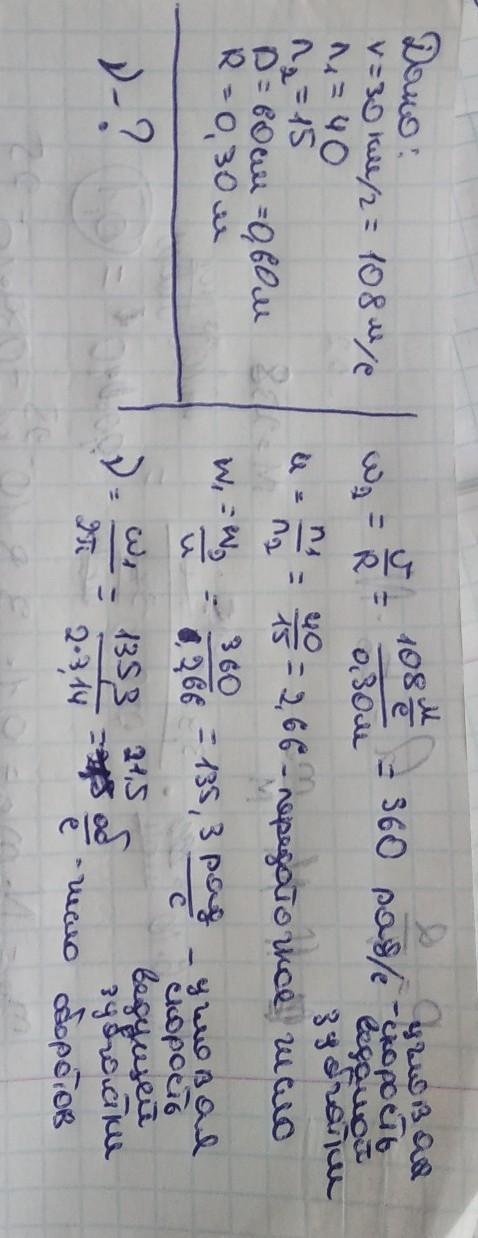 Дано:
v=30 км/г = 108 м/с
n₁ = 40
n₂ = 15
D = 60см = 0,60м
R = 0,30м
ν - ?
ω₂ = v/R = 108 м/с / 0,30м = 360 рад/с - угловая
скорость
ведомой
зубчатки
u = n₁/n₂ = 40/15 = 2,66 - передаточное число
ω₁ = ω₂/u = 360/2,66 = 135,3 рад/с - угловая
скорость
ведущей
зубчатки
ν = ω₁/2π = 135,3/2·3,14 = 21,5 об/с - число оборотов